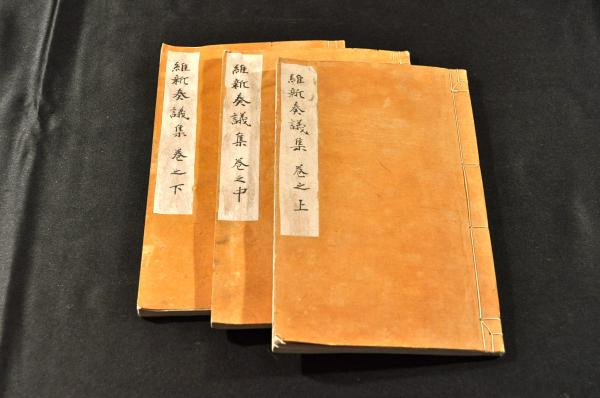 維新奏議集 巻之上
維新奏議集 巻之中
維新奏議集 巻之下